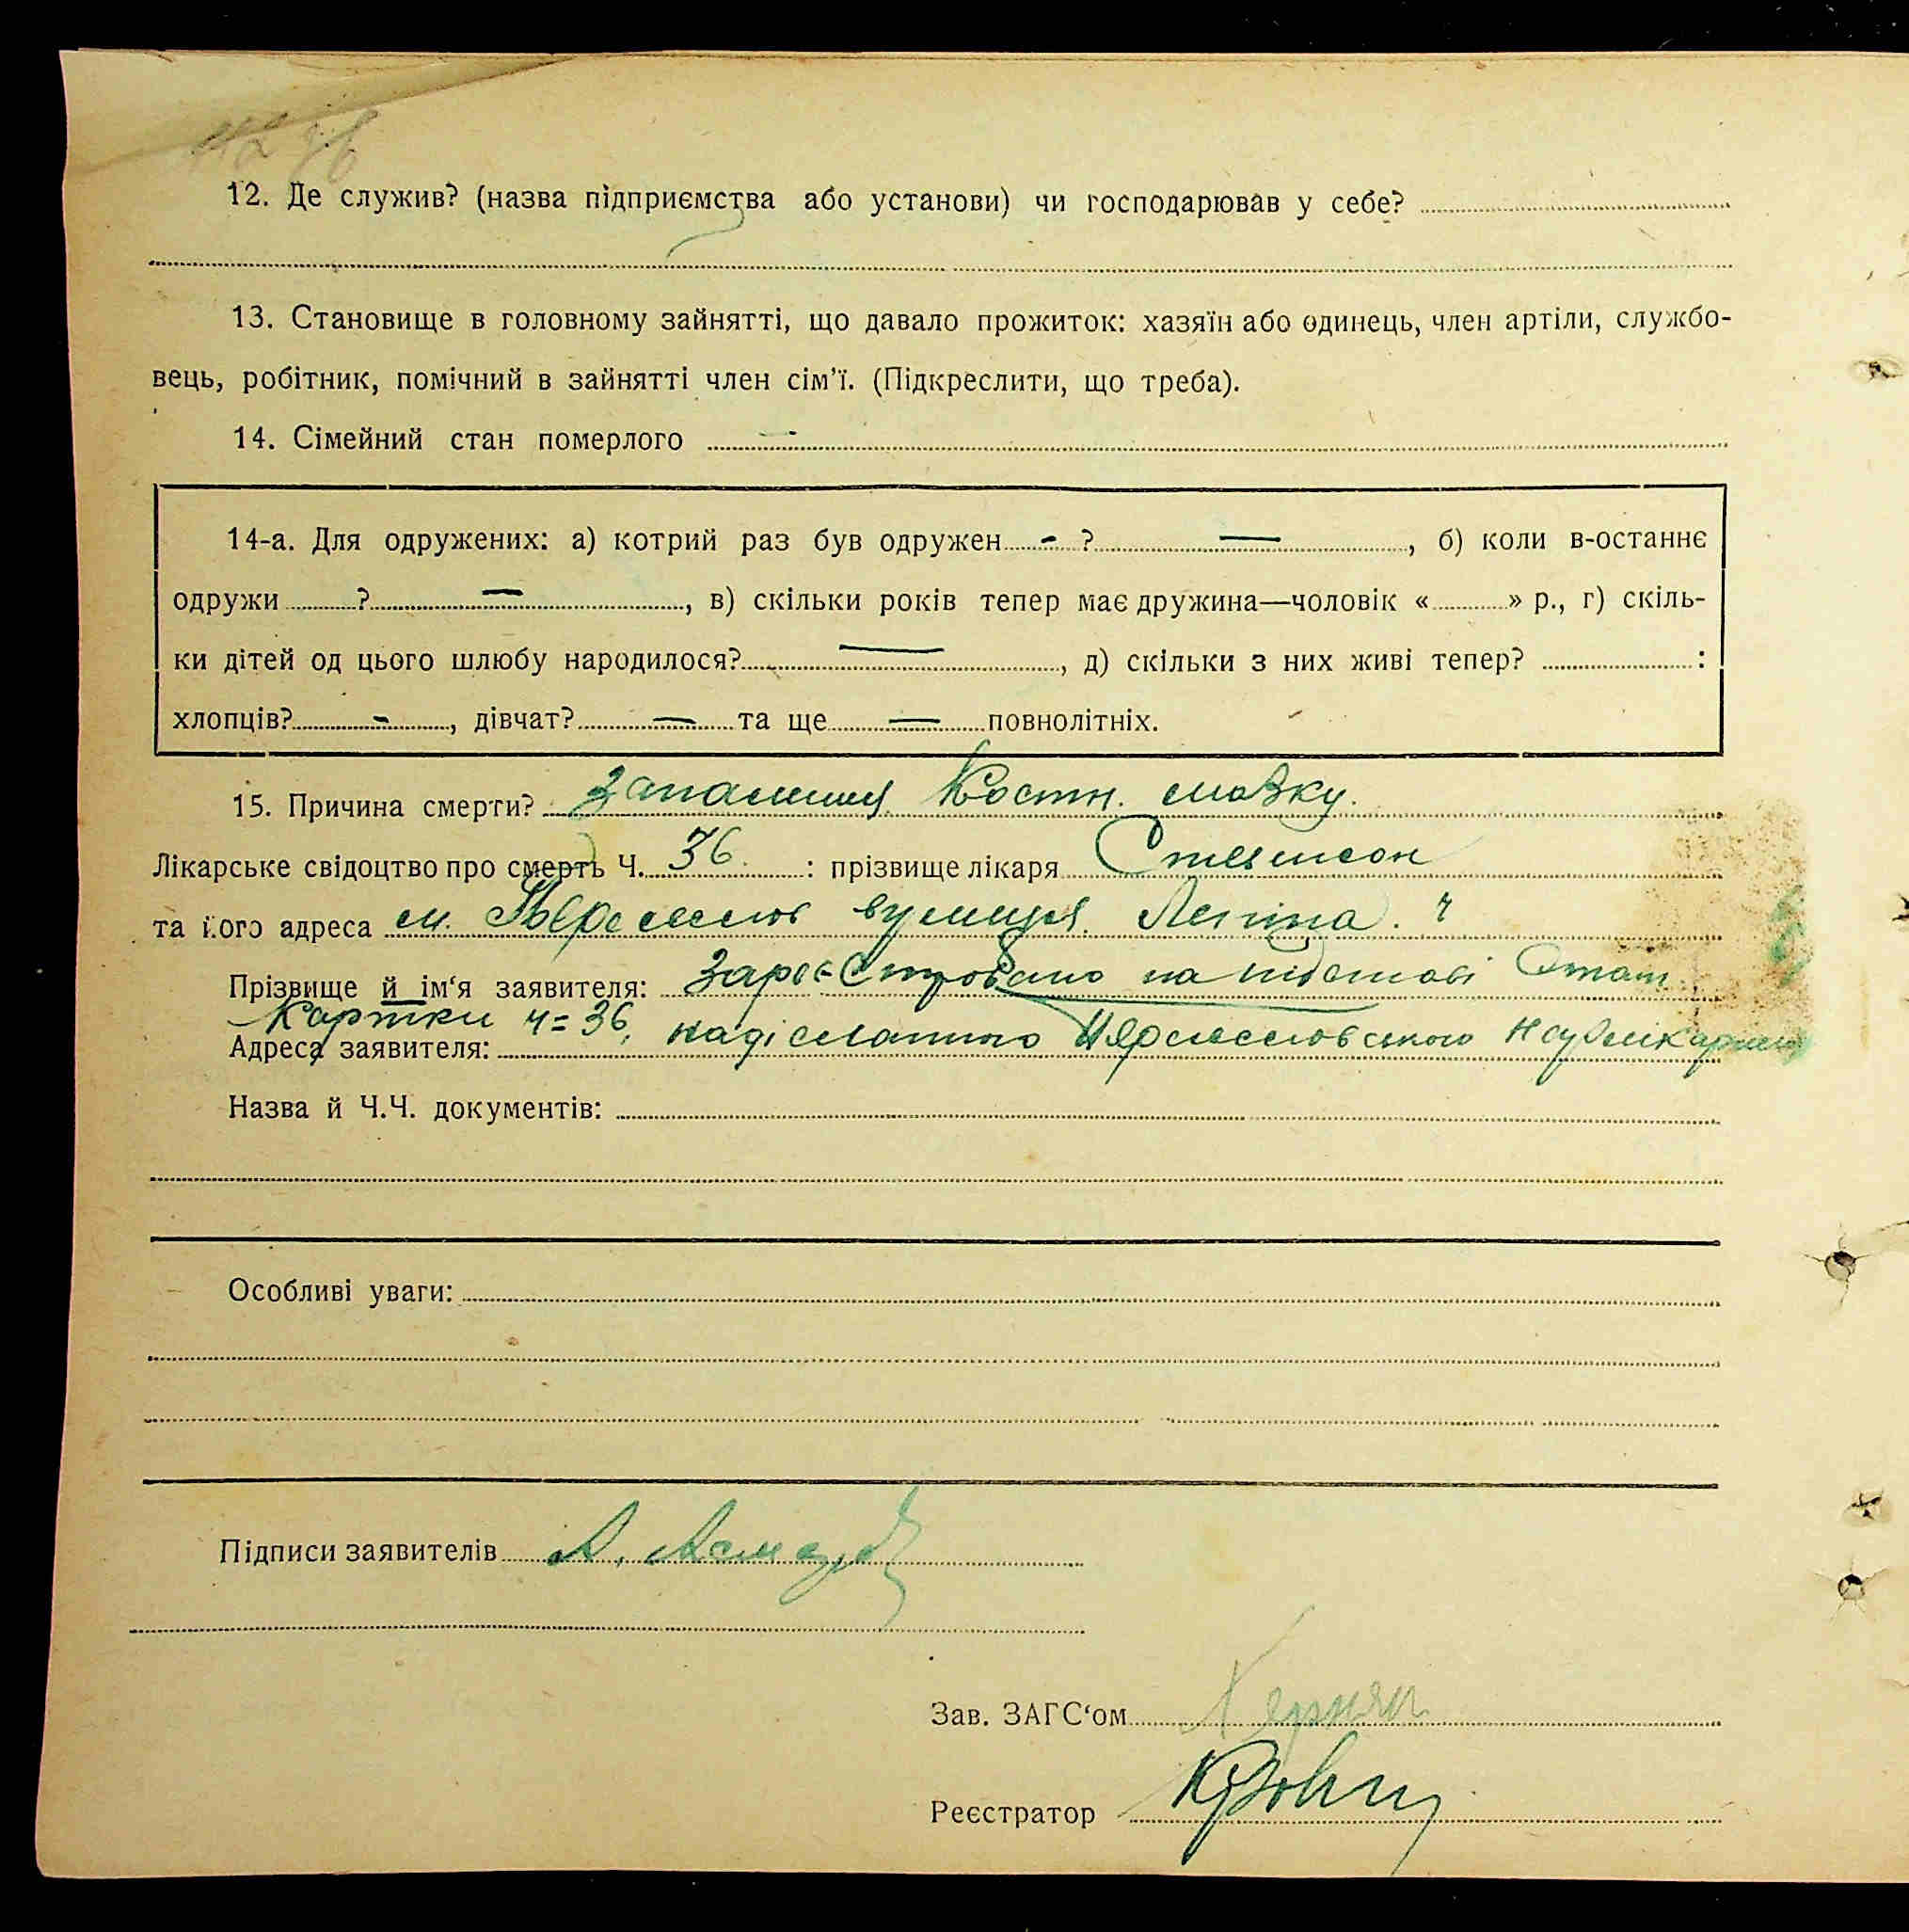 12. Де служив? (назва підприємства або установи) чи господарював у себе?
13. Становище в головному зайнятті, що давало прожиток: хазяїн або одинець, член артіли, службо-
вець, робітник, помічний в зайнятті член сім’ї. (Підкреслити, що треба).
14. Сімейний стан померлого —
14-а. Для одружених: а) котрий раз був одружен - ? —, б) коли в-останнє
одружи ? —, в) скільки років тепер має дружина—чоловік « » р., г) скіль-
ки дітей од цього шлюбу народилося? —, д) скільки з них живі тепер? :
хлопців? -, дівчат? — та ще — повнолітніх.
15. Причина смерти? Запалення Костн. мозку.
Лікарське свідоцтво про смерть Ч. 36. : прізвище лікаря
та його адреса м. вулиця Леніна. 4
Прізвище й ім‘я заявителя: Зареєстровано на підставі Стат
Картки ч=36, надісланного
Адреса заявителя:
Назва й Ч.Ч. документів:
Особливі уваги:
Підписи заявителів А.
Зав. ЗАГС‘ом
Реєстратор